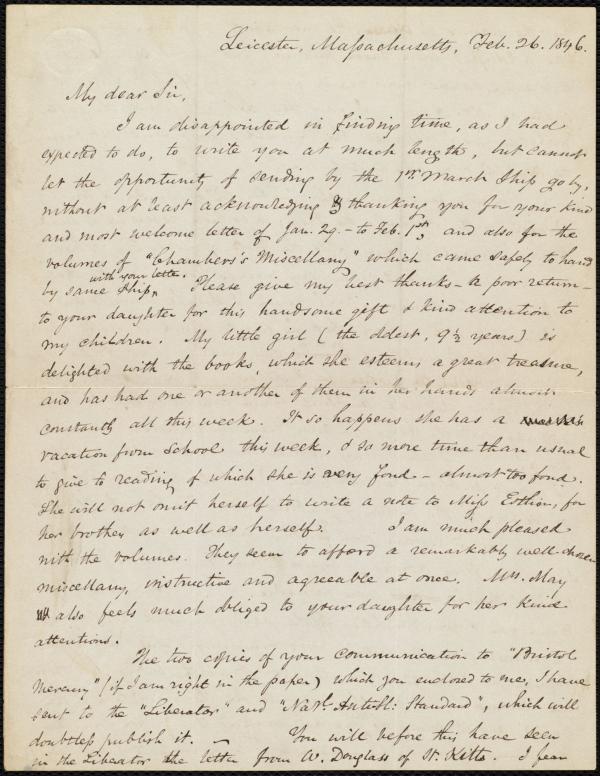 Leicester, Massachusetts, Feb. 26. 1846.
My dear Sir,
I am disappointed in finding time, as I had
expected to do, to write you at much length, but cannot
let the opportunity of sending by the 1st. March Ship go by,
without at least acknowledging & thanking you for your kind
and most welcome letter of Jan. 29. – to Feb. 1st, and also for the
volumes of "Chambers's Miscellany" which came safely to hand
with your letter.
by same ship. Please give my best thanks – a poor return –
to your daughter for this handsome gift & kind attention to
my children. My little girl (the oldest, 9½ years) is
delighted with the books, which she esteems a great treasure,
and has had one or another of them in her hands almost
constantly all this week. It so happens she has a
vacation from School this week, & so more time than usual
to give to reading of which she is very fond – almost too fond.
She will not omit herself to write a note to Miss Esthin, for
her brother as well as herself. I am much pleased
with the volumes. They seem to afford a remarkably well-chosen
miscellany, instructive and agreeable at once. Mrs. May
also feels much obliged to your daughter for her kind
attentions.
The two copies of your communication to "Bristol
Mercury" (if I am right in the paper) which you enclosed to me, I have
sent to the "Liberator" and "Natl. Antisl: Standard", which will
doubtless publish it. – You will before this have seen
in the Liberator the letter from W. Douglass of St. Kitts. I fear